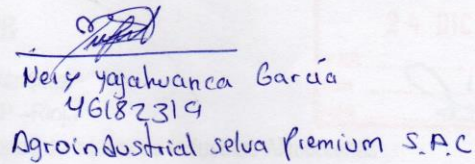 Nery Yajahuanca García
46182319
Agroindustrial selva Premium S.A.C
24 DIC